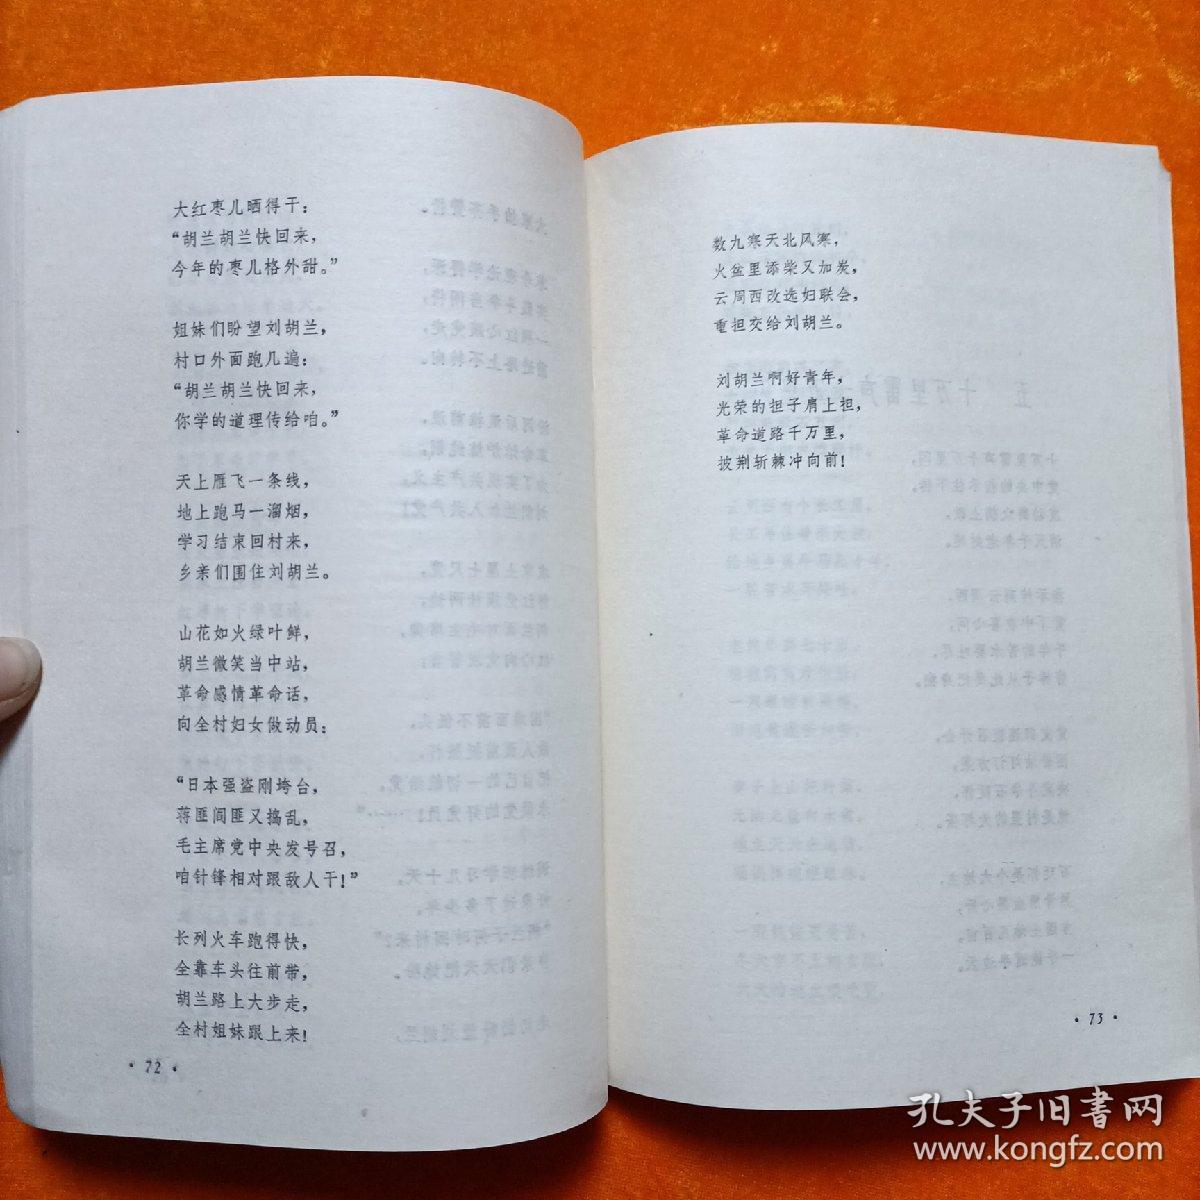 大红枣儿晒得干：
“胡兰胡兰快回来，
今年的枣儿格外甜。”
姐妹们盼望刘胡兰，
村口外面跑几遍：
“胡兰胡兰快回来，
你学的道理传给咱。”
天上雁飞一条线，
地上跑马一溜烟，
学习结束回村来，
乡亲们围住刘胡兰。
山花如火绿叶鲜，
胡兰微笑当中站，
革命感情革命话，
向全村妇女做动员：
“日本强盗刚垮台，
蒋匪阎匪又捣乱，
毛主席党中央发号召，
咱针锋相对跟敌人干！”
长列火车跑得快，
全靠车头往前带，
胡兰路上大步走，
全村姐妹跟上来！
·72·
数九寒天北风寒，
火盆里添柴又加炭，
云周西改选妇联会，
重担交给刘胡兰。
刘胡兰啊好青年，
光荣的担子肩上担，
革命道路千万里，
披荆斩棘冲向前！
·73·
孔夫子旧书网
www.kongfz.com